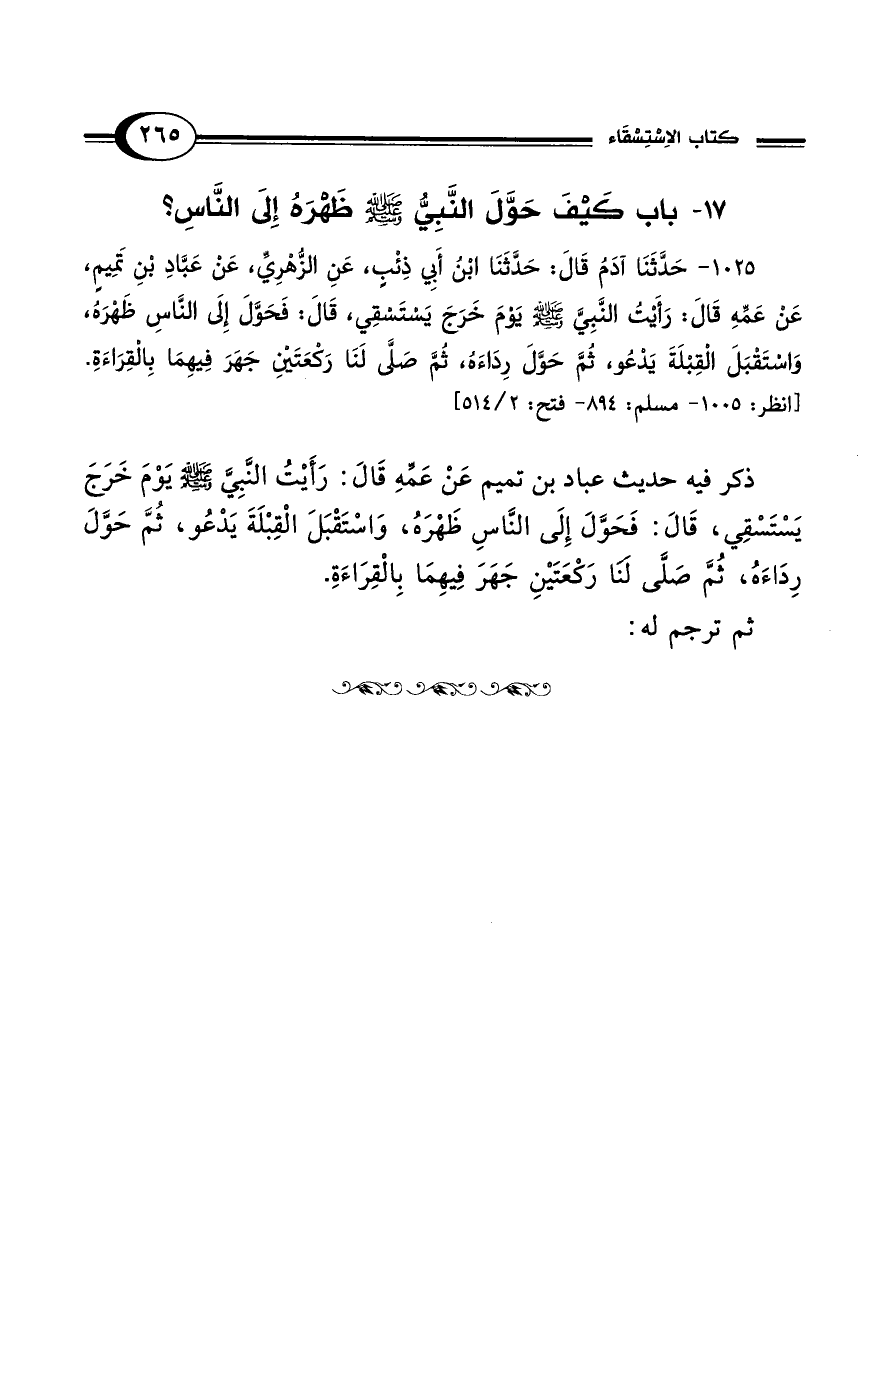 كتاب الاِسْتِسْقَاء ٢٦٥
١٧- باب كَيْفَ حَوَّلَ النَّبِيُّ ﷺ ظَهْرَهُ إِلَى النَّاسِ؟
١٠٢٥- حَدَّثَنَا آدَمُ قَالَ: حَدَّثَنَا ابْنُ أَبِي ذِئْبٍ، عَنِ الزُّهْرِيِّ، عَنْ عَبَّادِ بْنِ تَمِيمٍ،
عَنْ عَمِّهِ قَالَ: رَأَيْتُ النَّبِيَّ ﷺ يَوْمَ خَرَجَ يَسْتَسْقِي، قَالَ: فَحَوَّلَ إِلَى النَّاسِ ظَهْرَهُ،
وَاسْتَقْبَلَ الْقِبْلَةَ يَدْعُو، ثُمَّ حَوَّلَ رِدَاءَهُ، ثُمَّ صَلَّى لَنَا رَكْعَتَيْنِ جَهَرَ فِيهِمَا بِالْقِرَاءَةِ.
[انظر: ١٠٠٥- مسلم: ٨٩٤- فتح: ٢/ ٥١٤]
ذكر فيه حديث عباد بن تميم عَنْ عَمِّهِ قَالَ: رَأَيْتُ النَّبِيَّ ﷺ يَوْمَ خَرَجَ
يَسْتَسْقِي، قَالَ: فَحَوَّلَ إِلَى النَّاسِ ظَهْرَهُ، وَاسْتَقْبَلَ الْقِبْلَةَ يَدْعُو، ثُمَّ حَوَّلَ
رِدَاءَهُ، ثُمَّ صَلَّى لَنَا رَكْعَتَيْنِ جَهَرَ فِيهِمَا بِالْقِرَاءَةِ.
ثم ترجم له: